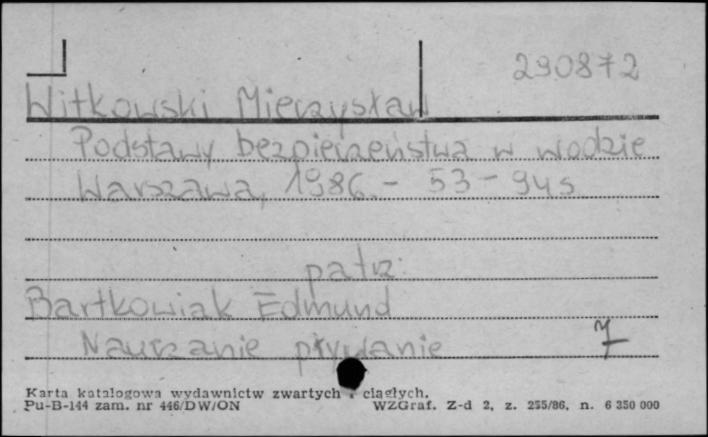 290872
Witkowski Mieczysław
Podstawy bezpieczeństwa w wodzie
Warszawa, 1986. - 53 - 94 s
patrz:
Bartkowiak Edmund
Nauczanie pływanie
7
Karta katalogowa wydawnictw zwartych i ciągłych.
Pu-B-144 zam. nr 446/DW/ON WZGraf. Z-d 2, z. 255/86, n. 6 350 000